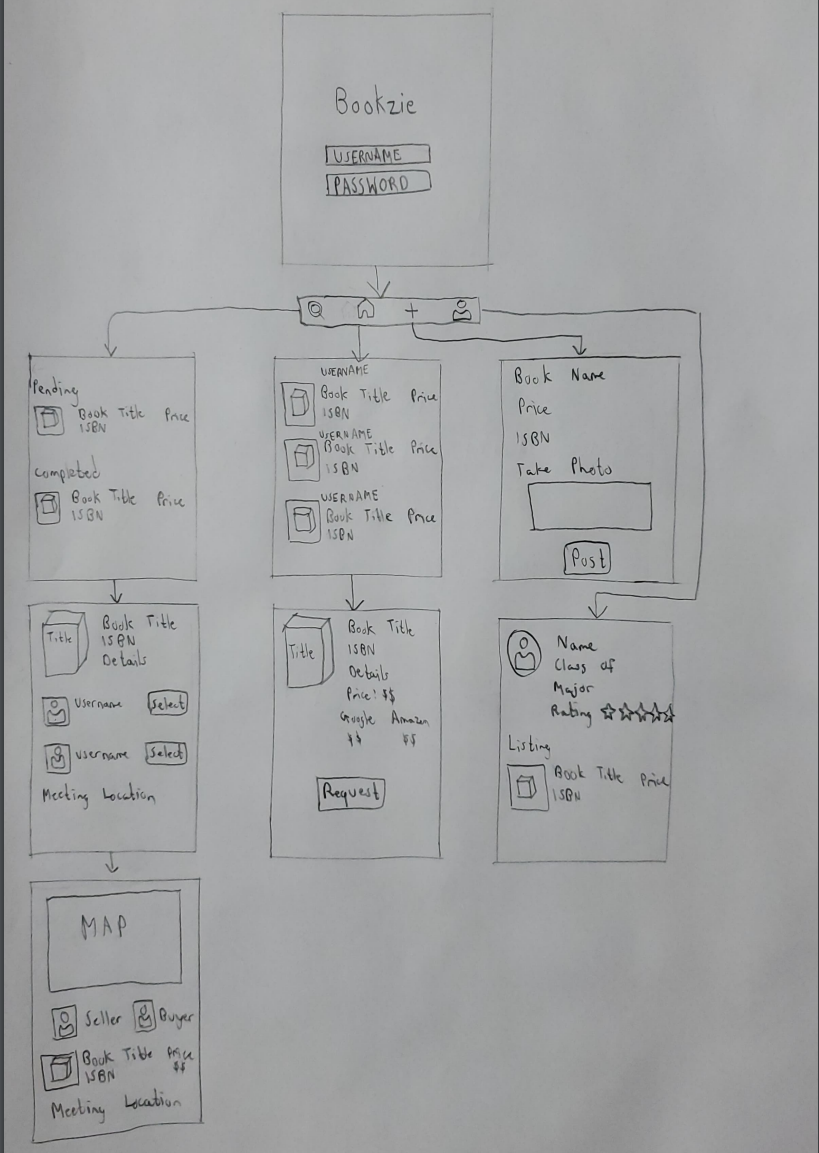 Bookzie
USERNAME
PASSWORD
Pending
Book Title Price
ISBN
Completed
Book Title Price
ISBN
USERNAME
Book Title Price
ISBN
USERNAME
Book Title Price
ISBN
USERNAME
Book Title Price
ISBN
Book Name
Price
ISBN
Take Photo
Post
Title
Book Title
ISBN
Details
Username
Select
Username
Select
Meeting Location
Title
Book Title
ISBN
Details
Price: $$
Google Amazon
$$ $$
Request
Name
Class of
Major
Rating
Listing
Book Title Price
ISBN
MAP
Seller Buyer
Book Title Price
ISBN $$
Meeting Location